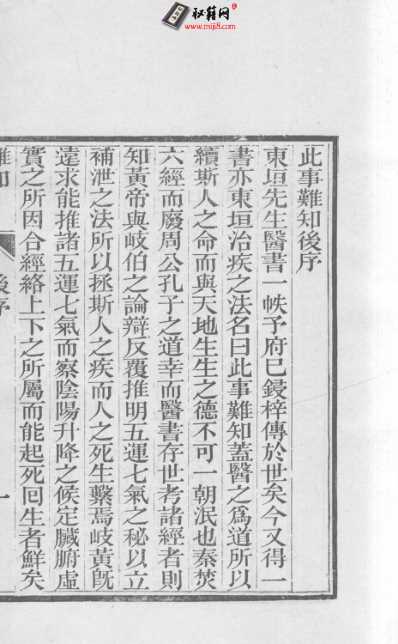 秘籍网
www.miji8.com
此事難知後序
東垣先生醫書一帙予府已鋟梓傳於世矣今又得一
書亦東垣治疾之法名曰此事難知蓋醫之爲道所以
續斯人之命而與天地生生之德不可一朝泯也秦焚
六經而廢周公孔子之道幸而醫書存世考諸經者則
知黃帝與岐伯之論辯反覆推明五運七氣之秘以立
補泄之法所以拯斯人之疾而人之死生繫焉岐黃旣
遠求能推諸五運七氣而察陰陽升降之候定臟腑虛
實之所因合經絡上下之所屬而能起死回生者鮮矣
難知
後序
一